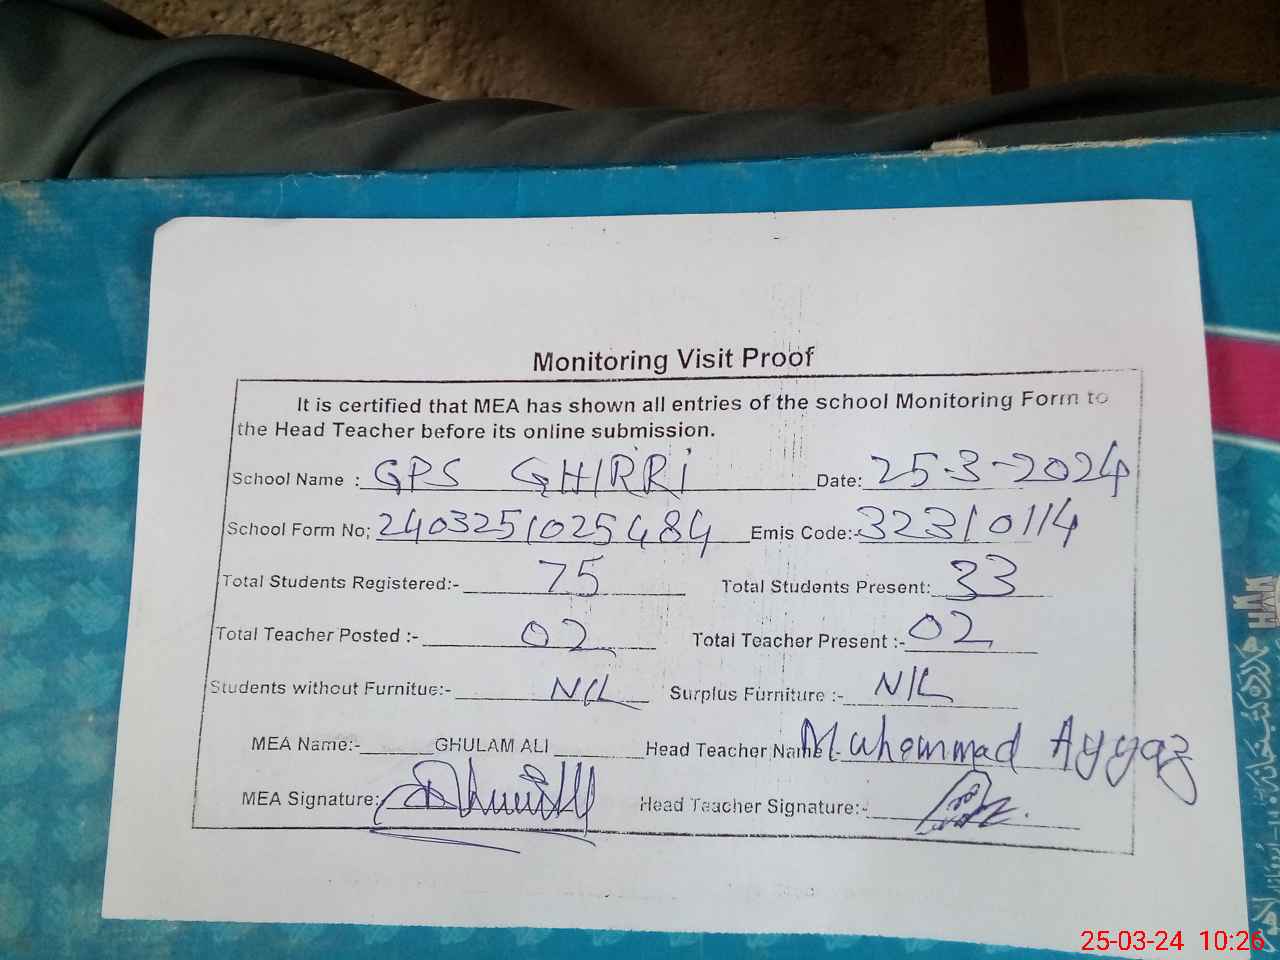 Monitoring Visit Proof
It is certified that MEA has shown all entries of the school Monitoring Form to
the Head Teacher before its online submission.
School Name : GPS GHIRRI Date: 25-3-2024
School Form No; 2403251025484 Emis Code:- 32310114
Total Students Registered:- 75 Total Students Present: 33
Total Teacher Posted :- 02 Total Teacher Present :- 02
Students without Furnitue:- NIL Surplus Furniture :- NIL
MEA Name:- GHULAM ALI Head Teacher Name :- Muhammad Ayyaz
MEA Signature: Head Teacher Signature:-
25-03-24 10:26